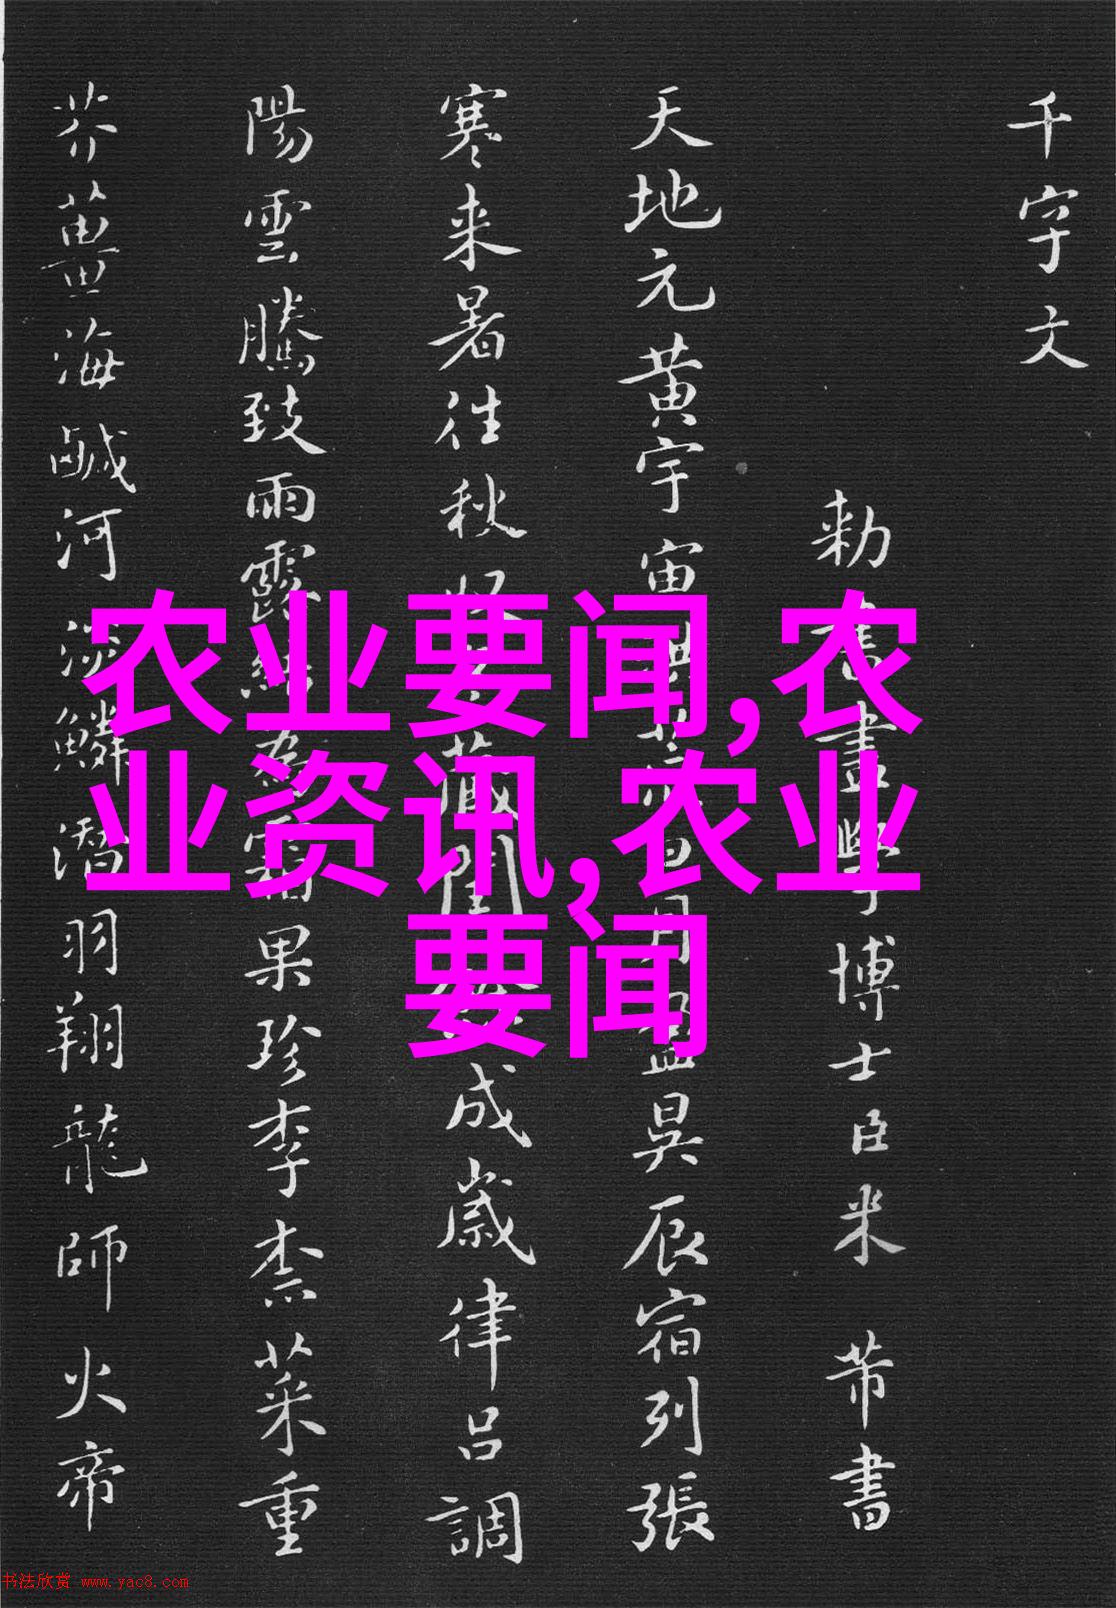 千字文
勅書畫學博士臣米芾書
天地元黄宇宙洪荒日月盈昃辰宿列張
寒来暑往秋收藏閏成歲律呂調
陽雲騰致雨露結為霜果珍李柰菜重
芥薑海鹹河淡鱗潛羽翔龍師火帝
农业要闻,农
业资讯,农业
要闻
书法欣赏 www.yac8.com